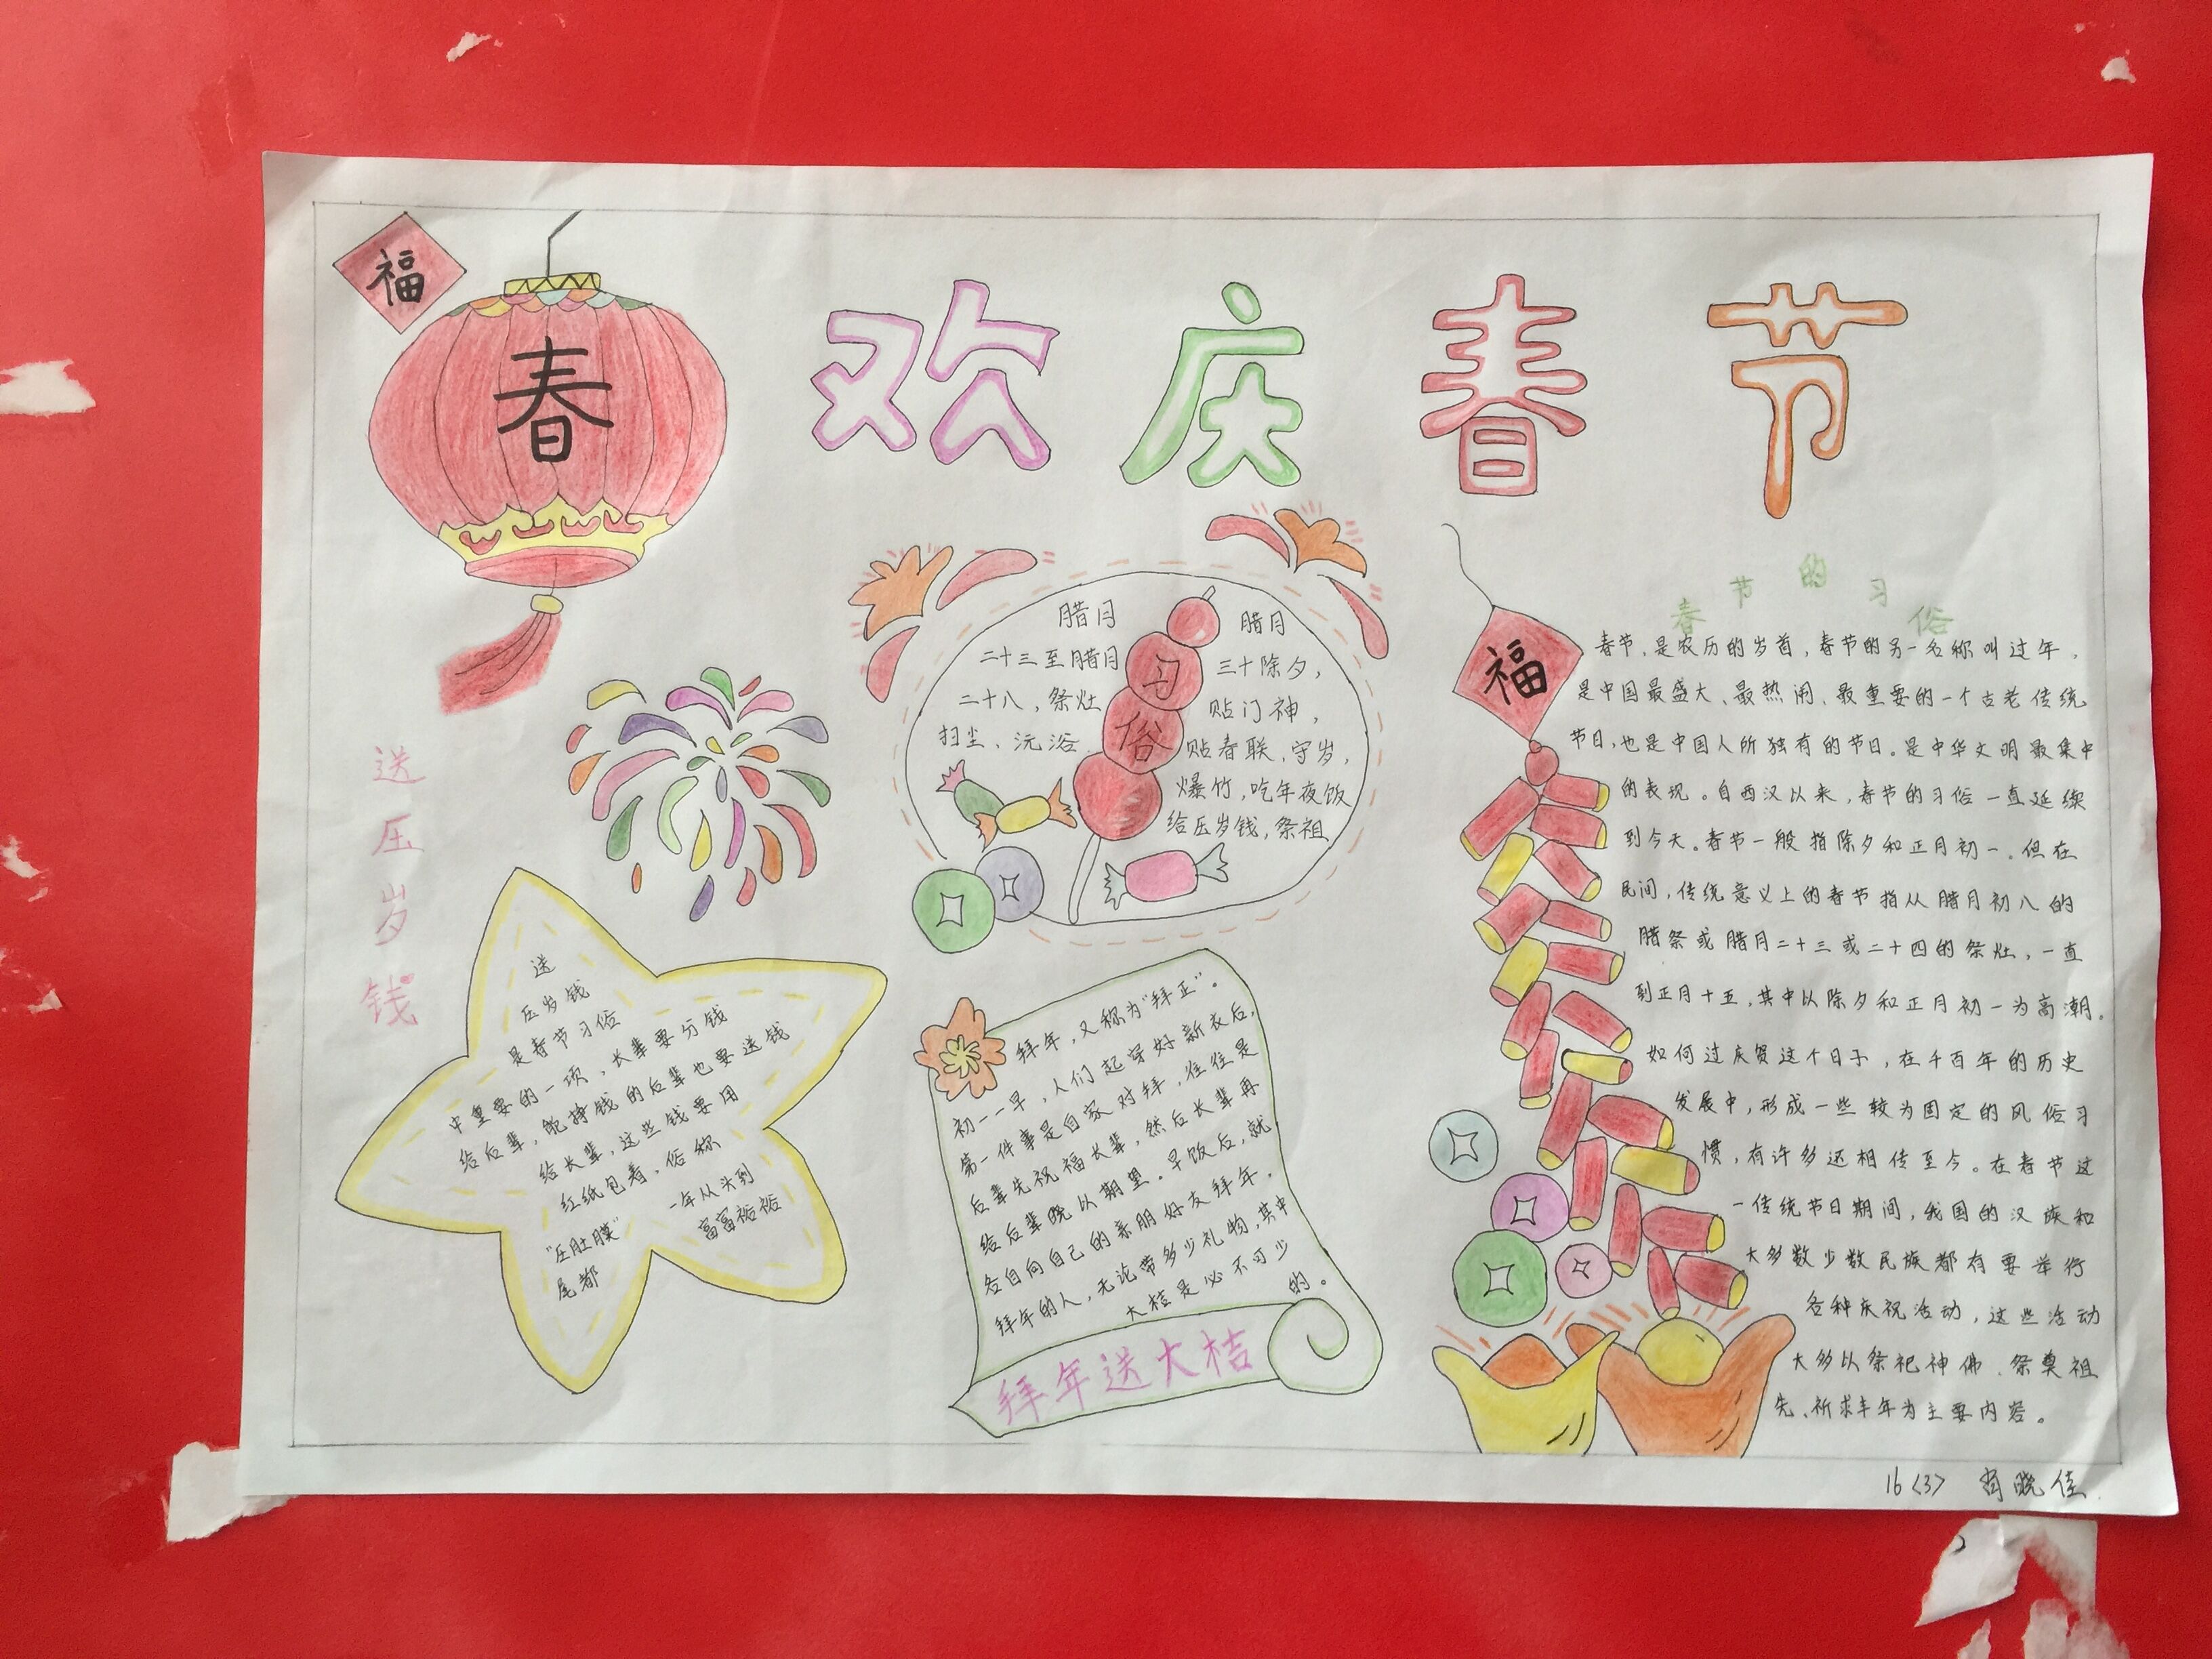 福
春
欢庆春节
送压岁钱
送
压岁钱
是春节习俗
中重要的一项，长辈要分钱
给后辈，能挣钱的后辈也要送钱
给长辈，这些钱要用
红纸包着，俗称
"压肚腰" 一年从头到
尾都 富富裕裕
腊月
二十三至腊月
二十八，祭灶
扫尘、沅浴
习俗
腊月
三十除夕，
贴门神，
贴春联、守岁，
爆竹，吃年夜饭
给压岁钱，祭祖
拜年，又称为"拜正"。
初一一早，人们起穿好新衣后，
第一件事是自家对拜，往往是
后辈先祝福长辈，然后长辈再
给后辈晚以期望。早饭后，就
各自向自己的亲朋好友拜年。
拜年的人，无论带多少礼物，其中
大桔是必不可少的。
拜年送大桔
春节的习俗
福
春节，是农历的岁首，春节的另一名称叫过年，
是中国最盛大、最热闹、最重要的一个古老传统
节日，也是中国人所独有的节日。是中华文明最集中
的表现。自西汉以来，春节的习俗一直延续
到今天。春节一般指除夕和正月初一。但在
民间，传统意义上的春节指从腊月初八的
腊祭或腊月二十三或二十四的祭灶，一直
到正月十五，其中以除夕和正月初一为高潮。
如何过庆贺这个日子，在千百年的历史
发展中，形成一些较为固定的风俗习
惯，有许多还相传至今。在春节这
一传统节日期间，我国的汉族和
大多数少数民族都有要举行
各种庆祝活动，这些活动
大多以祭祀神佛、祭奠祖
先、祈求丰年为主要内容。
16<3> 肖晓佳